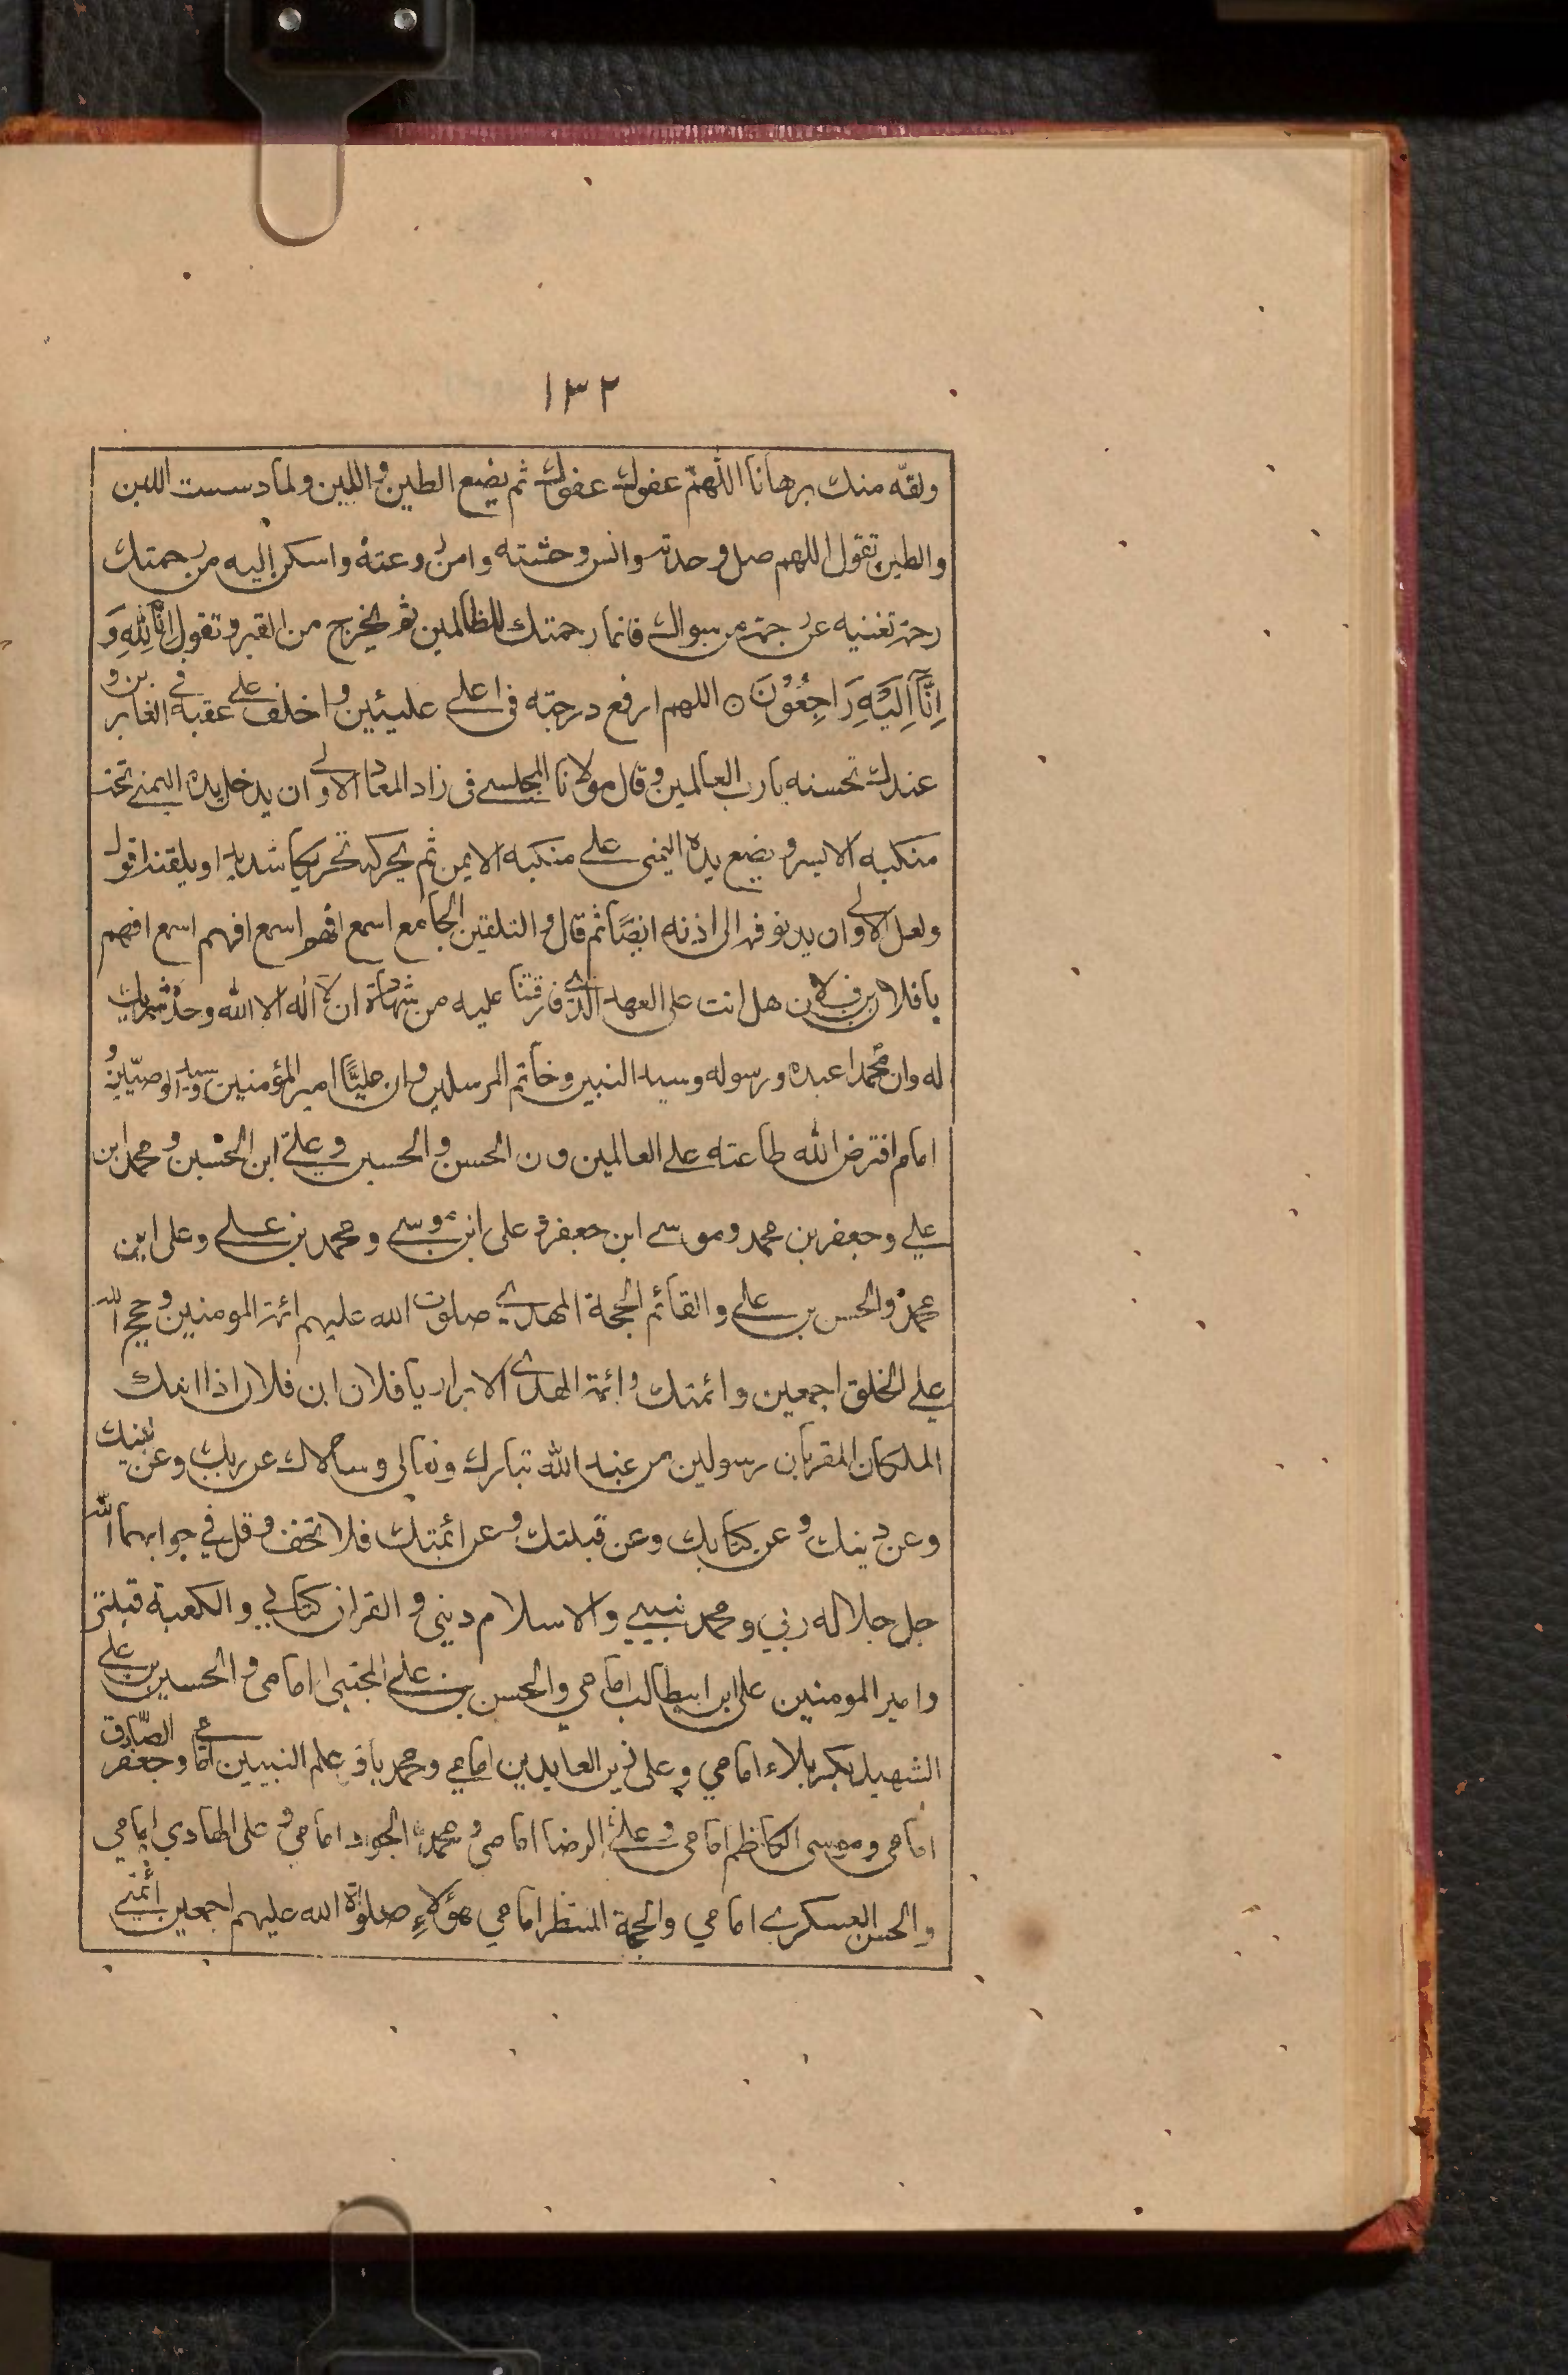 ١٣٢
ولقّه منك برهانا اللهم عفوك عفوك ثم يضع الطين و اللبن ولما دسست اللبن
والطين تقول اللهم صل وحدته وانس وحشته وامن روعته واسكن إليه من رحمتك
رحمة تغنيه عن رحمة من سواك فانما رحمتك للظالمين ثم يخرج من القبر و تقول اِنَّا لِلّهِ وَ
اِنَّآ اِلَيْهِ رَاجِعُوْنَ ۝ اللهم ارفع درجته فى اعلے عليئين و اخلف علے عقبه فے الغابرين و
عندك تحسنه يا رب العالمين و قال مولانا المجلسے فى زاد المعاد الاولے ان يدخل يده اليمنے تحت
منكبه الايسر و يضع يده اليمنى علے منكبه الايمن ثم يحركه تحريكا شديدا و يلقنه اقول
ولعل الاولے ان يدنو فمه الى اذنه ايضًا ثم قال و التلقين الجامع اسمع افهم اسمع افهم اسمع افهم
يا فلان بن فلان هل انت على العهد الذے فارقتنا عليه من شهادة ان لا اله الا الله وحده لا شريك
له وان محمدا عبده ورسوله وسيد النبين وخاتم المرسلين و ان عليًّا امير المؤمنين وسيد الوصيّين و
امام افترض الله طاعته علے العالمين و ن الحسن و الحسين و علےّ ابن الحسين و محمد ابن
علے و جعفر بن محمد و موسے ابن جعفر و على ابن موسے و محمد بن علے و على ابن
محمد و الحسن بن علے و القائم الحجة المهدے صلوت الله عليهم ائمة المومنين و حجج الله
علے الخلق اجمعين و ائمتك و ائمة الهدے الابرار يا فلان ابن فلان اذا اتك
الملكان المقربان رسولين من عند الله تبارك وتعالى وسالاك عن ربك وعن نبيك
وعن دينك و عن كتابك وعن قبلتك و عن ائمتك فلا تخف و قل في جوابهما الله
جل جلاله ربي و محمد نبيے والاسلام دينى و القران كتابے و الكعبة قبلتى
و امير المومنين على ابن ابيطالب امامي والحسن بن علے المجتبى امامى و الحسين بن علے
الشهيد بكربلاء امامي و على زين العابدين امامے و محمد باقر علم النبيين امامے و جعفر الصّادق
امامى و موسى الكاظم امامى و علےّ الرضا امامى و محمد الجواد امامى و على الهادي امامي
والحسن العسكرے امامي والحجة المنتظر امامي هؤلاءِ صلوة الله عليهم اجمعين أئمتے